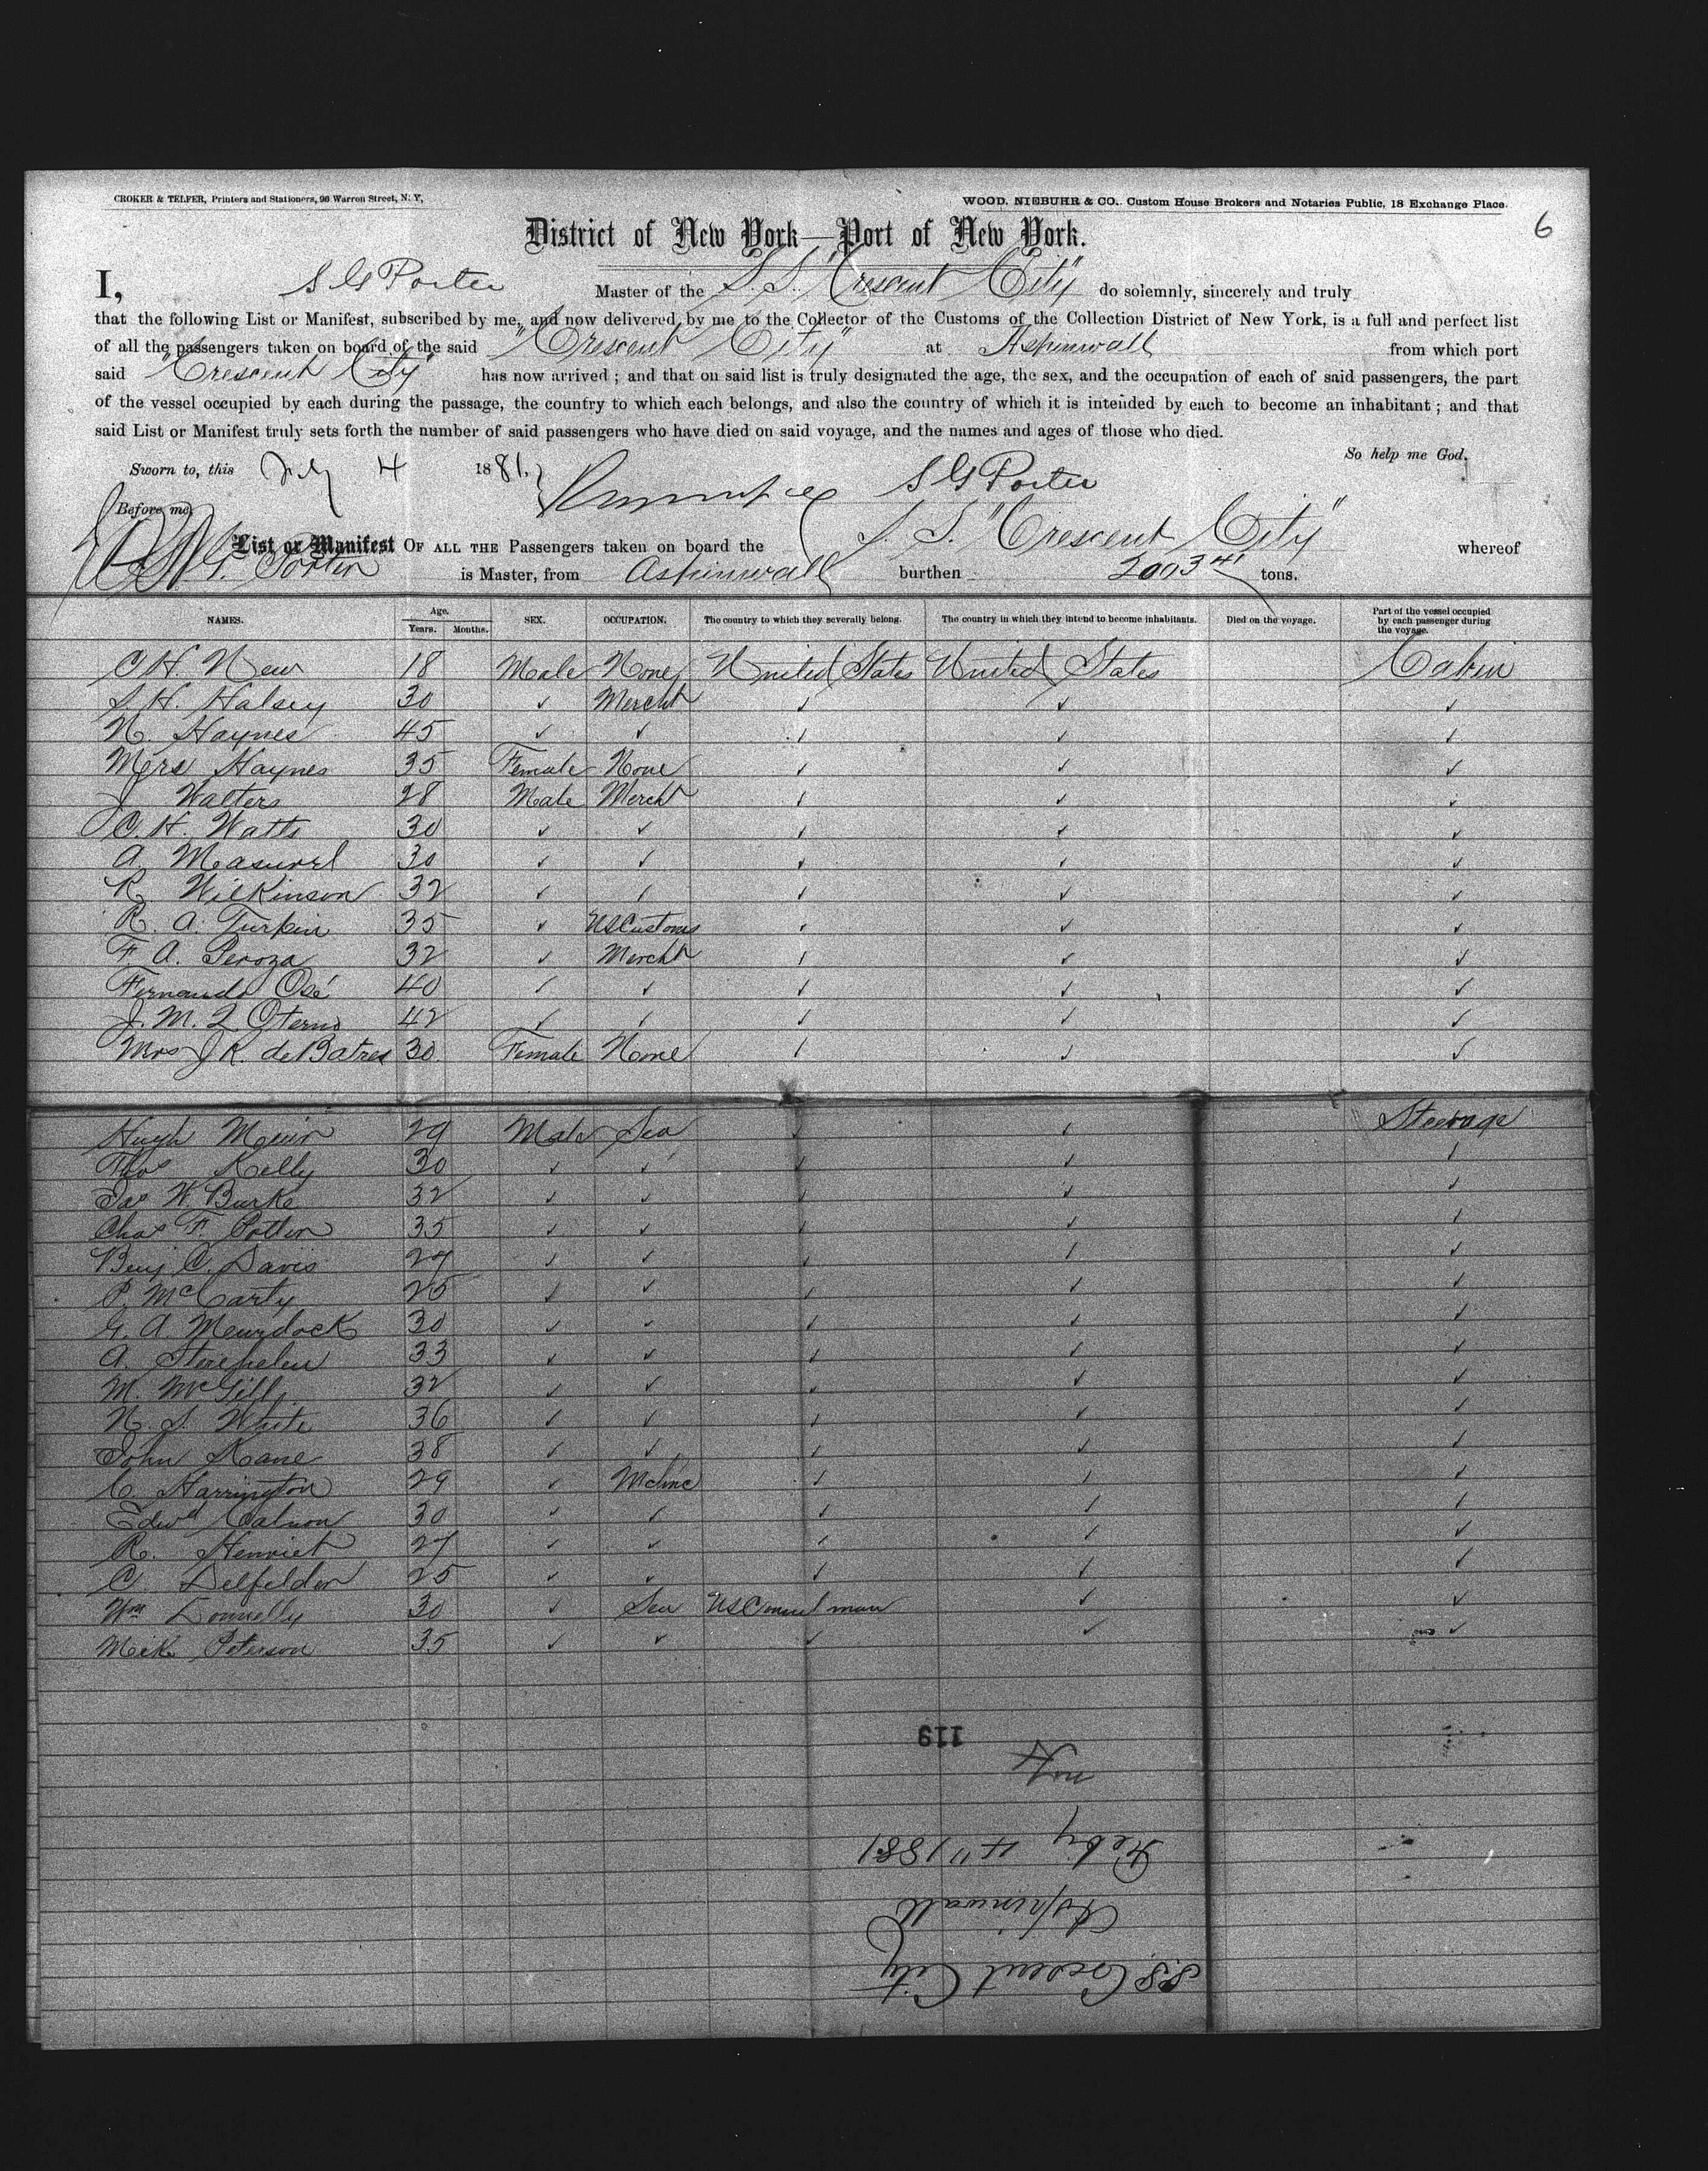 CROKER & TELFER, Printers and Stationers, 96 Warren Street, N. Y,
WOOD, NIEBUHR & CO., Custom House Brokers and Notaries Public, 18 Exchange Place.
6
District of New York—Port of New York.
I, S G Porter Master of the S. S. "Crescent City" do solemnly, sincerely and truly
that the following List or Manifest, subscribed by me, and now delivered by me to the Collector of the Customs of the Collection District of New York, is a full and perfect list
of all the passengers taken on board of the said "Crescent City" at Aspinwall from which port
said "Crescent City" has now arrived ; and that on said list is truly designated the age, the sex, and the occupation of each of said passengers, the part
of the vessel occupied by each during the passage, the country to which each belongs, and also the country of which it is intended by each to become an inhabitant ; and that
said List or Manifest truly sets forth the number of said passengers who have died on said voyage, and the names and ages of those who died.
So help me God.
Sworn to, this 4 1881. S G Porter
Before me,
List or Manifest OF ALL THE Passengers taken on board the S. S. "Crescent City" whereof
S. G. Porter is Master, from Aspinwall burthen 2003 41 tons.
NAMES. Age. Years. Months. SEX. OCCUPATION. The country to which they severally belong. The country in which they intend to become inhabitants. Died on the voyage. Part of the vessel occupied by each passenger during the voyage.
C H. New 18 Male None United States United States Cabin
S. H. Halsey 30 ✓ Mercht ✓ ✓ ✓
N. Haynes 45 ✓ ✓ ✓ ✓ ✓
Mrs Haynes 35 Female None ✓ ✓ ✓
J Walters 28 Male Mercht ✓ ✓ ✓
C. H. Watts 30 ✓ ✓ ✓ ✓ ✓
A. 30 ✓ ✓ ✓ ✓ ✓
R Wilkinson 32 ✓ ✓ ✓ ✓ ✓
R. A. Turpin 35 ✓ US Customs ✓ ✓ ✓
F. A. Peroza 32 ✓ Mercht ✓ ✓ ✓
Fernando Osé 40 ✓ ✓ ✓ ✓ ✓
J. M. Q 42 ✓ ✓ ✓ ✓ ✓
Mrs J K. de Batres 30 Female None ✓ ✓ ✓
Hugh Muir 29 Male Sea ✓ ✓ Steerage
Thos Kelly 30 ✓ ✓ ✓ ✓ ✓
Jas W. Burke 32 ✓ ✓ ✓ ✓ ✓
Chas F. Potter 35 ✓ ✓ ✓ ✓ ✓
Benj C. Davis 27 ✓ ✓ ✓ ✓ ✓
P. McCarty 25 ✓ ✓ ✓ ✓ ✓
G. A. Meurdock 30 ✓ ✓ ✓ ✓ ✓
A. 33 ✓ ✓ ✓ ✓ ✓
M. McGill 32 ✓ ✓ ✓ ✓ ✓
N. S. White 36 ✓ ✓ ✓ ✓ ✓
John Kane 38 ✓ ✓ ✓ ✓ ✓
C. Harrington 29 ✓ Mchnc ✓ ✓ ✓
Edwd 30 ✓ ✓ ✓ ✓ ✓
R. Henriet 27 ✓ ✓ ✓ ✓ ✓
C. Delfelder 25 ✓ ✓ ✓ ✓ ✓
Wm Donnelly 30 ✓ Sea US Consul man ✓ ✓
Mike Peterson 35 ✓ ✓ ✓ ✓ ✓
S.S. Crescent City
Aspinwall
Feby 4" 1881
119